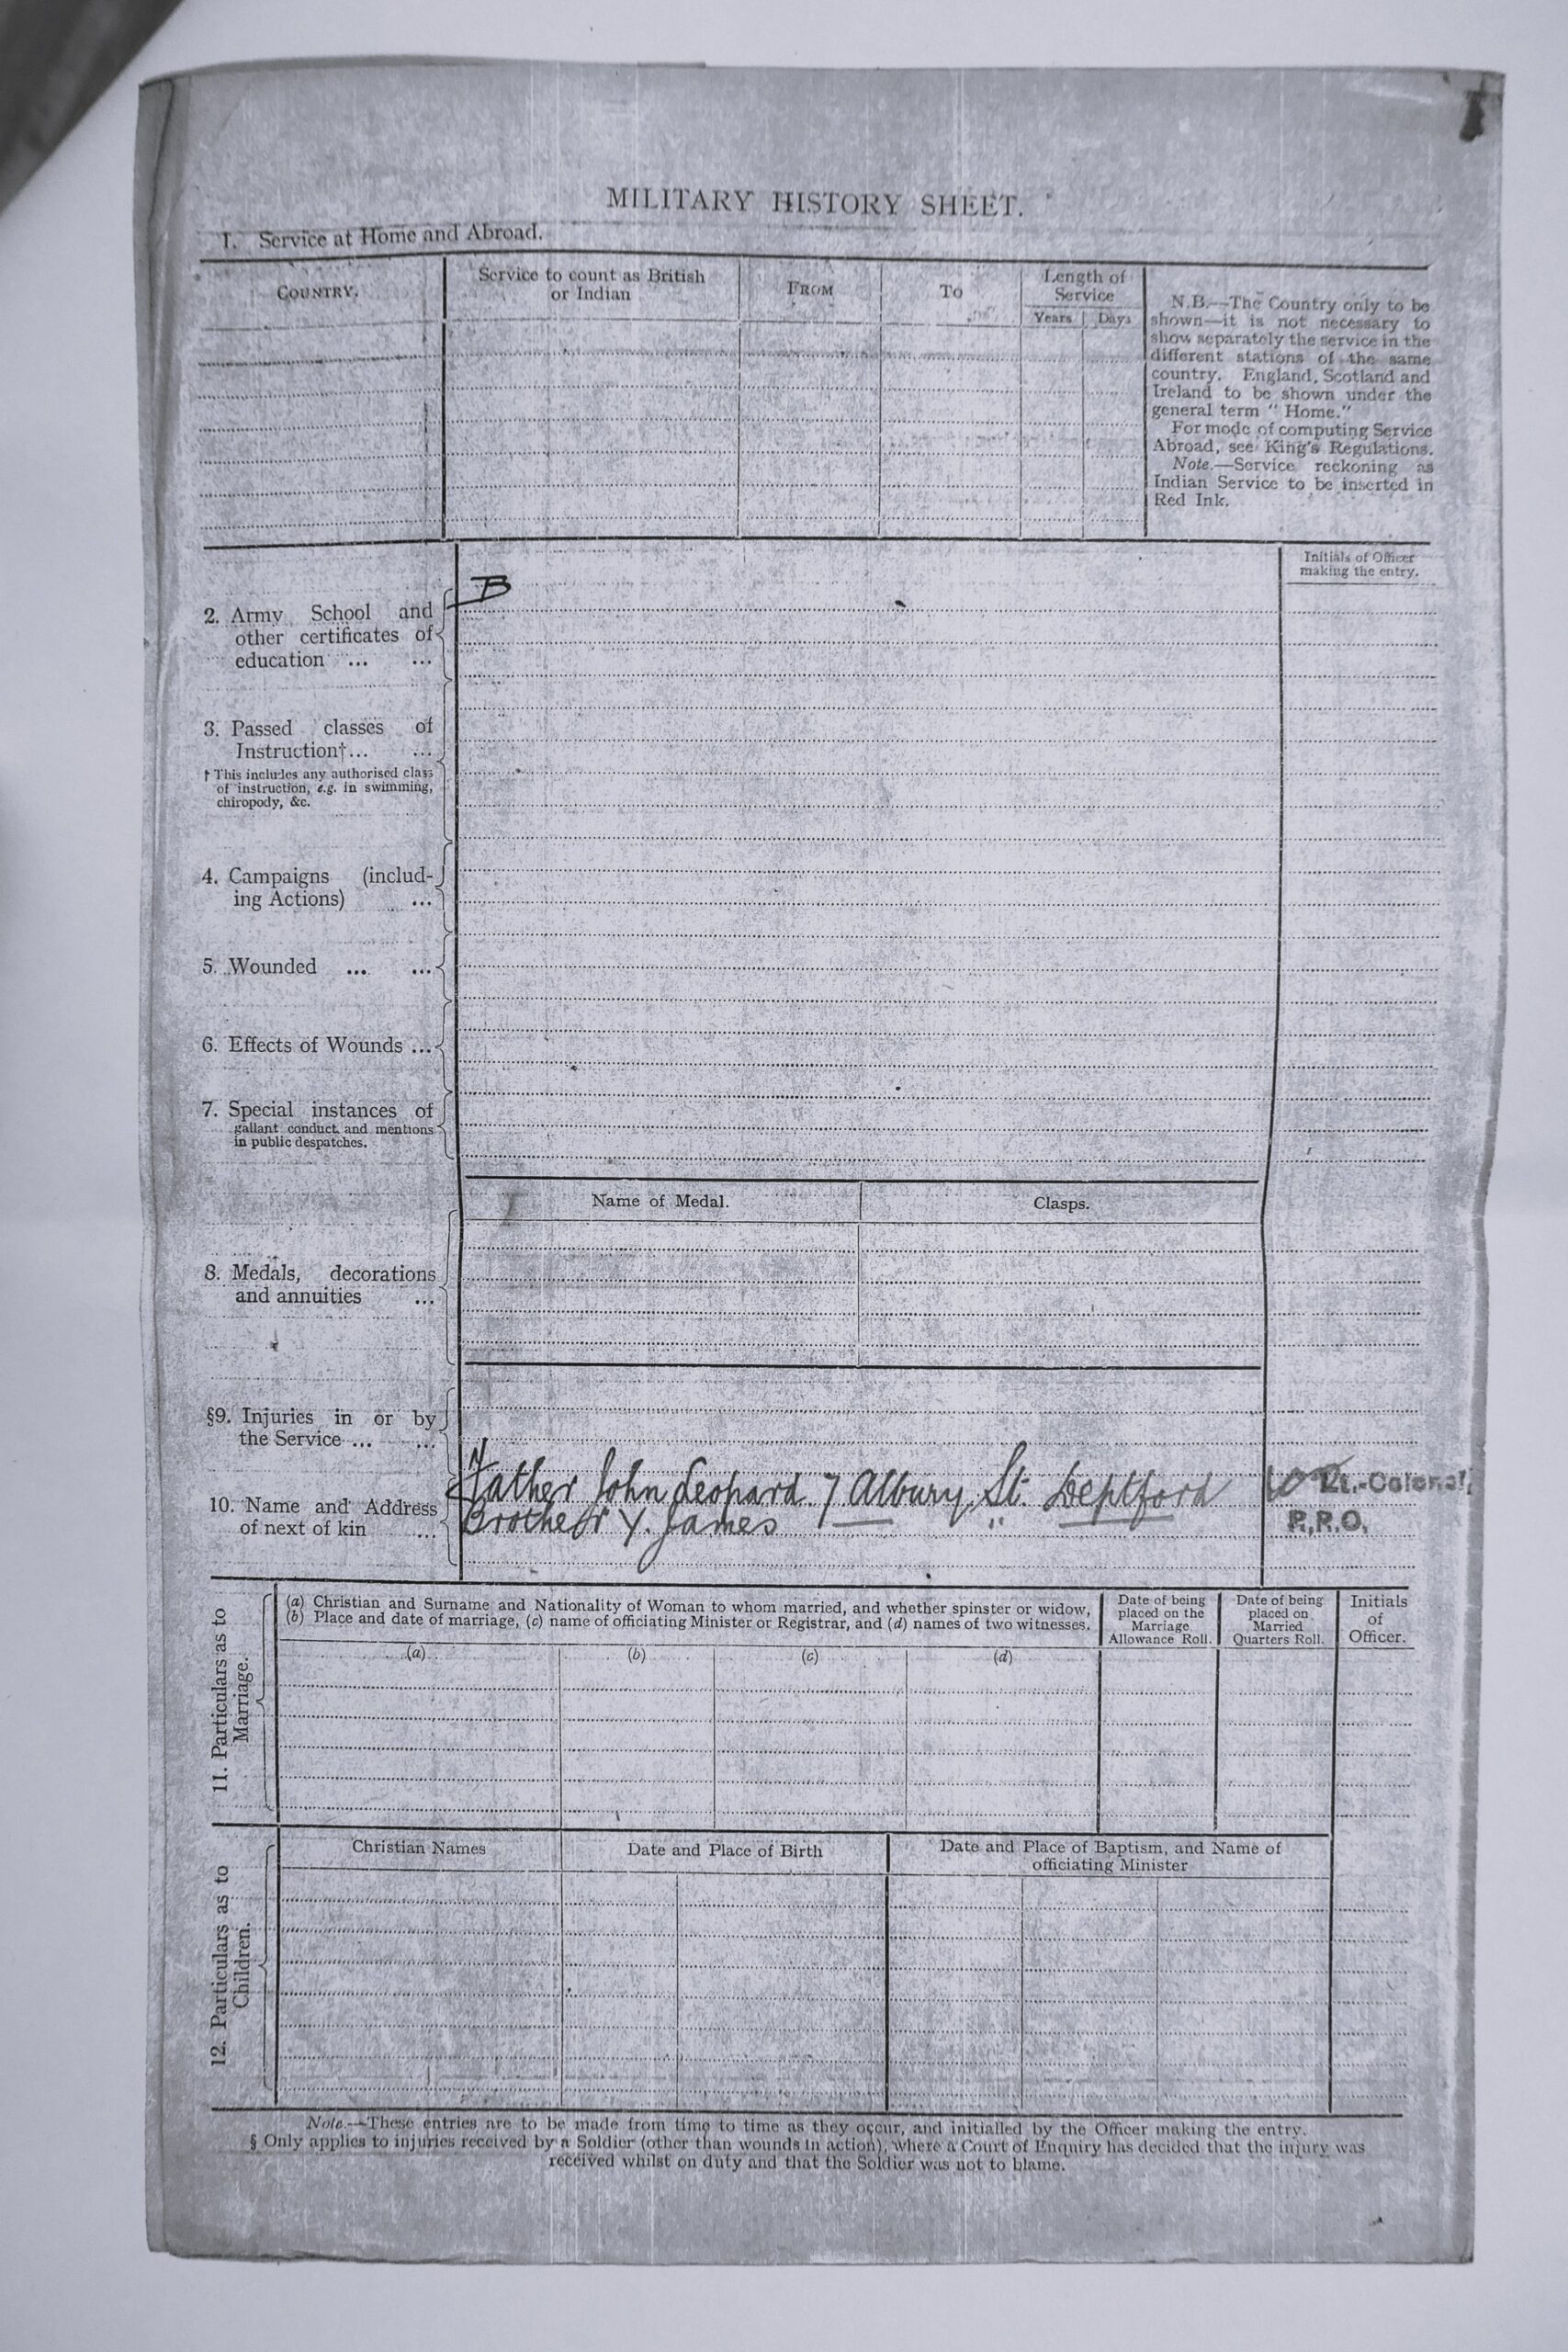 MILITARY HISTORY SHEET.
1. Service at Home and Abroad.
COUNTRY.
Service to count as British
or Indian
FROM
TO
Length of
Service
Years
Days
N.B.—The Country only to be
shown—it is not necessary to
show separately the service in the
different stations of the same
country. England, Scotland and
Ireland to be shown under the
general term "Home."
For mode of computing Service
Abroad, see King's Regulations.
Note.—Service reckoning as
Indian Service to be inserted in
Red Ink.
Initials of Officer
making the entry.
B
2. Army School and
other certificates of
education ... ...
3. Passed classes of
Instruction†... ...
† This includes any authorised class
of instruction, e.g. in swimming,
chiropody, &c.
4. Campaigns (includ-
ing Actions) ...
5. Wounded ... ...
6. Effects of Wounds ...
7. Special instances of
gallant conduct and mentions
in public despatches.
Name of Medal.
Clasps.
8. Medals, decorations
and annuities ...
§9. Injuries in or by
the Service ... ...
10. Name and Address
of next of kin ...
Father John Leopard 7 Albury St. Deptford
Brother Y. James "
Lt.-Colonel,
R.P.O.
11. Particulars as to
Marriage.
(a) Christian and Surname and Nationality of Woman to whom married, and whether spinster or widow,
(b) Place and date of marriage, (c) name of officiating Minister or Registrar, and (d) names of two witnesses.
Date of being
placed on the
Marriage
Allowance Roll.
Date of being
placed on
Married
Quarters Roll.
Initials
of
Officer.
(a)
(b)
(c)
(d)
12. Particulars as to
Children.
Christian Names
Date and Place of Birth
Date and Place of Baptism, and Name of
officiating Minister
Note.—These entries are to be made from time to time as they occur, and initialled by the Officer making the entry.
§ Only applies to injuries received by a Soldier (other than wounds in action), where a Court of Enquiry has decided that the injury was
received whilst on duty and that the Soldier was not to blame.